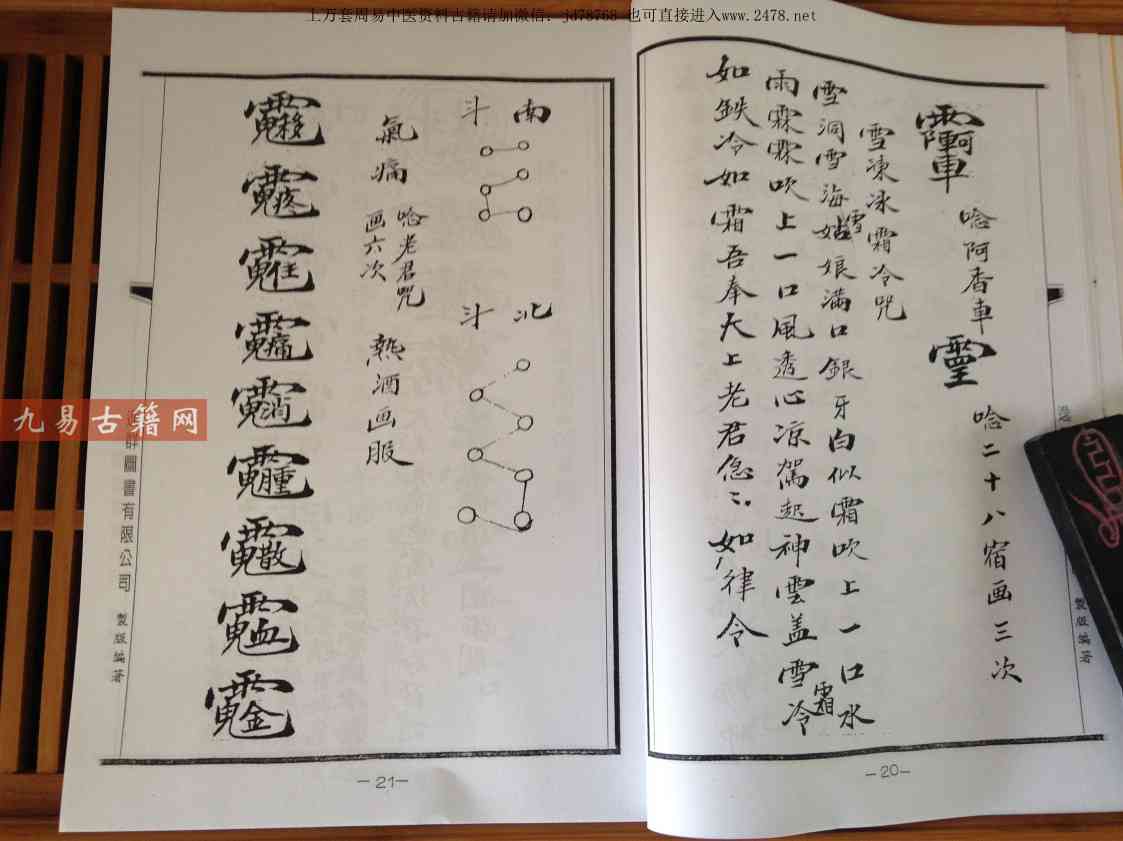 上万套周易中医资料古籍请加微信: jd78768 也可直接进入www.2478.net
唸阿香車
唸二十八宿画三次
雪凍冰霜冷咒
雪洞雪海雪姑娘满口銀牙白似霜吹上一口水
雨霖霖吹上一口風透心凉駕起神雲盖雪霜冷
如鉄冷如霜吾奉大上老君急〻如律令
製版編著
-20-
南斗
北斗
氣痛
唸老君咒
画六次
熱酒画服
九易古籍网
群圖書有限公司 製版編著
-21-